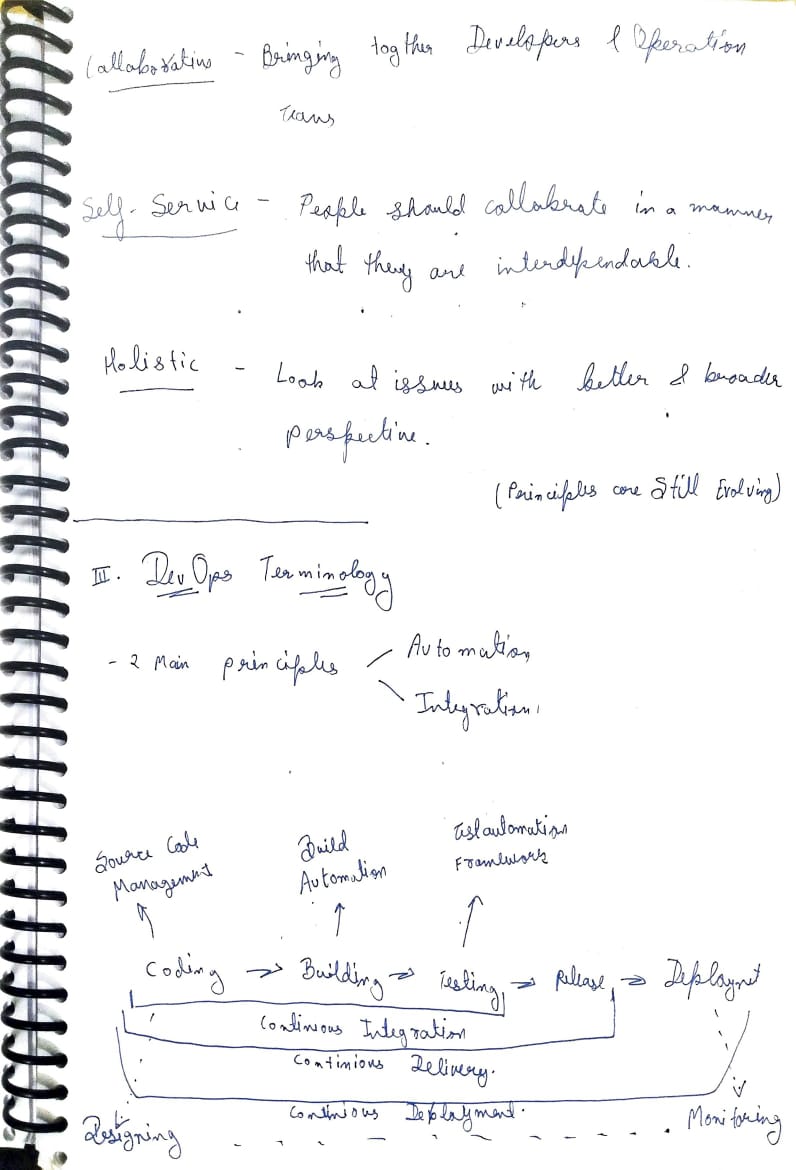 Callaborative - Bringing togther Developers & Operation
Teams
Self-Service - People should collabrate in a manner
that they are interdependable.
Holistic - Look at issues with better & broader
perspective.
(Principles are Still Evolving)
III. DevOps Terminology
- 2 Main principles
Automation
Integration
Source Code
Management
Build
Automation
Test automation
Framework
Coding → Building → Testing → Release → Deploymet
Continious Integration
Continious Delivery.
Continious Deployment.
Designing
Monitoring